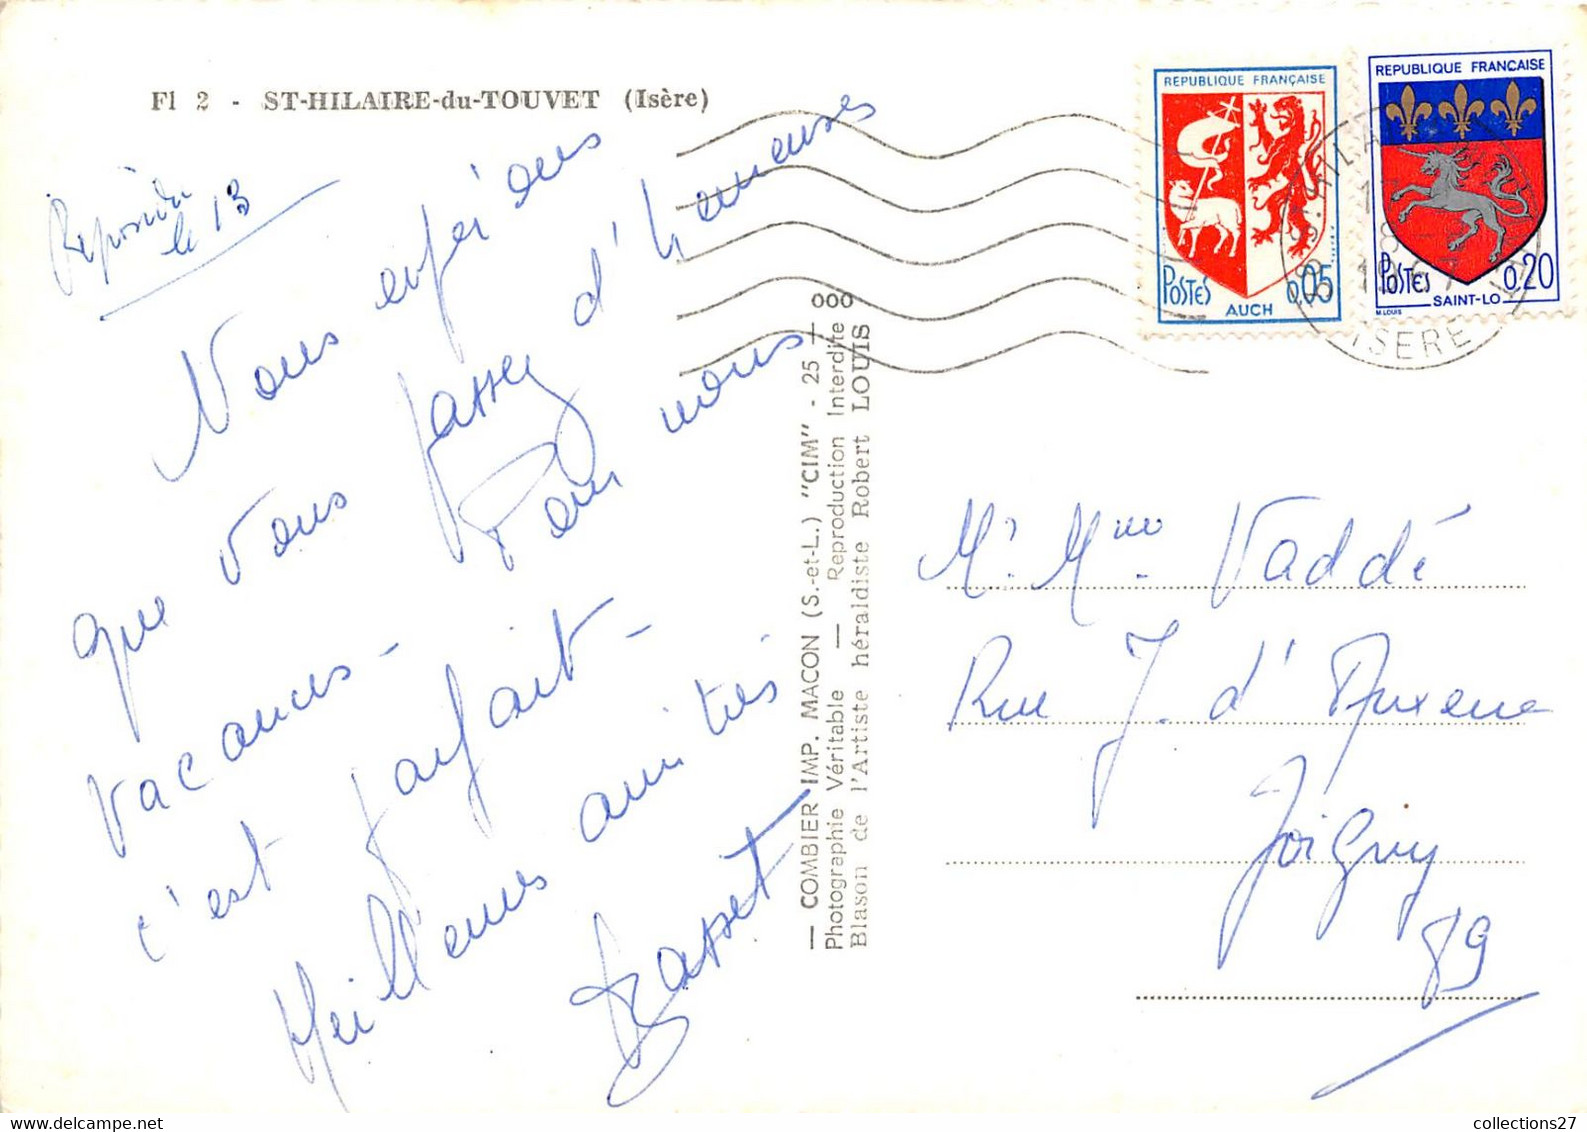 Fl 2 - ST-HILAIRE-du-TOUVET (Isère)
Répondu
le 13
Nous espérons
que vous passez d'heureuses
vacances - Pour nous
c'est parfait -
Meilleures amitiés
Basset
— COMBIER IMP. MACON (S.-et-L.) "CIM" - 25 —
Photographie Véritable — Reproduction Interdite
Blason de l'Artiste héraldiste Robert LOUIS
000
REPUBLIQUE FRANÇAISE
POSTES 0,05
AUCH
REPUBLIQUE FRANÇAISE
POSTES 0,20
SAINT-LO
M.LOUIS
ISERE
Mr. Mme. Vaddé
Rue J. d'Auxerre
Joigny
89
collections27